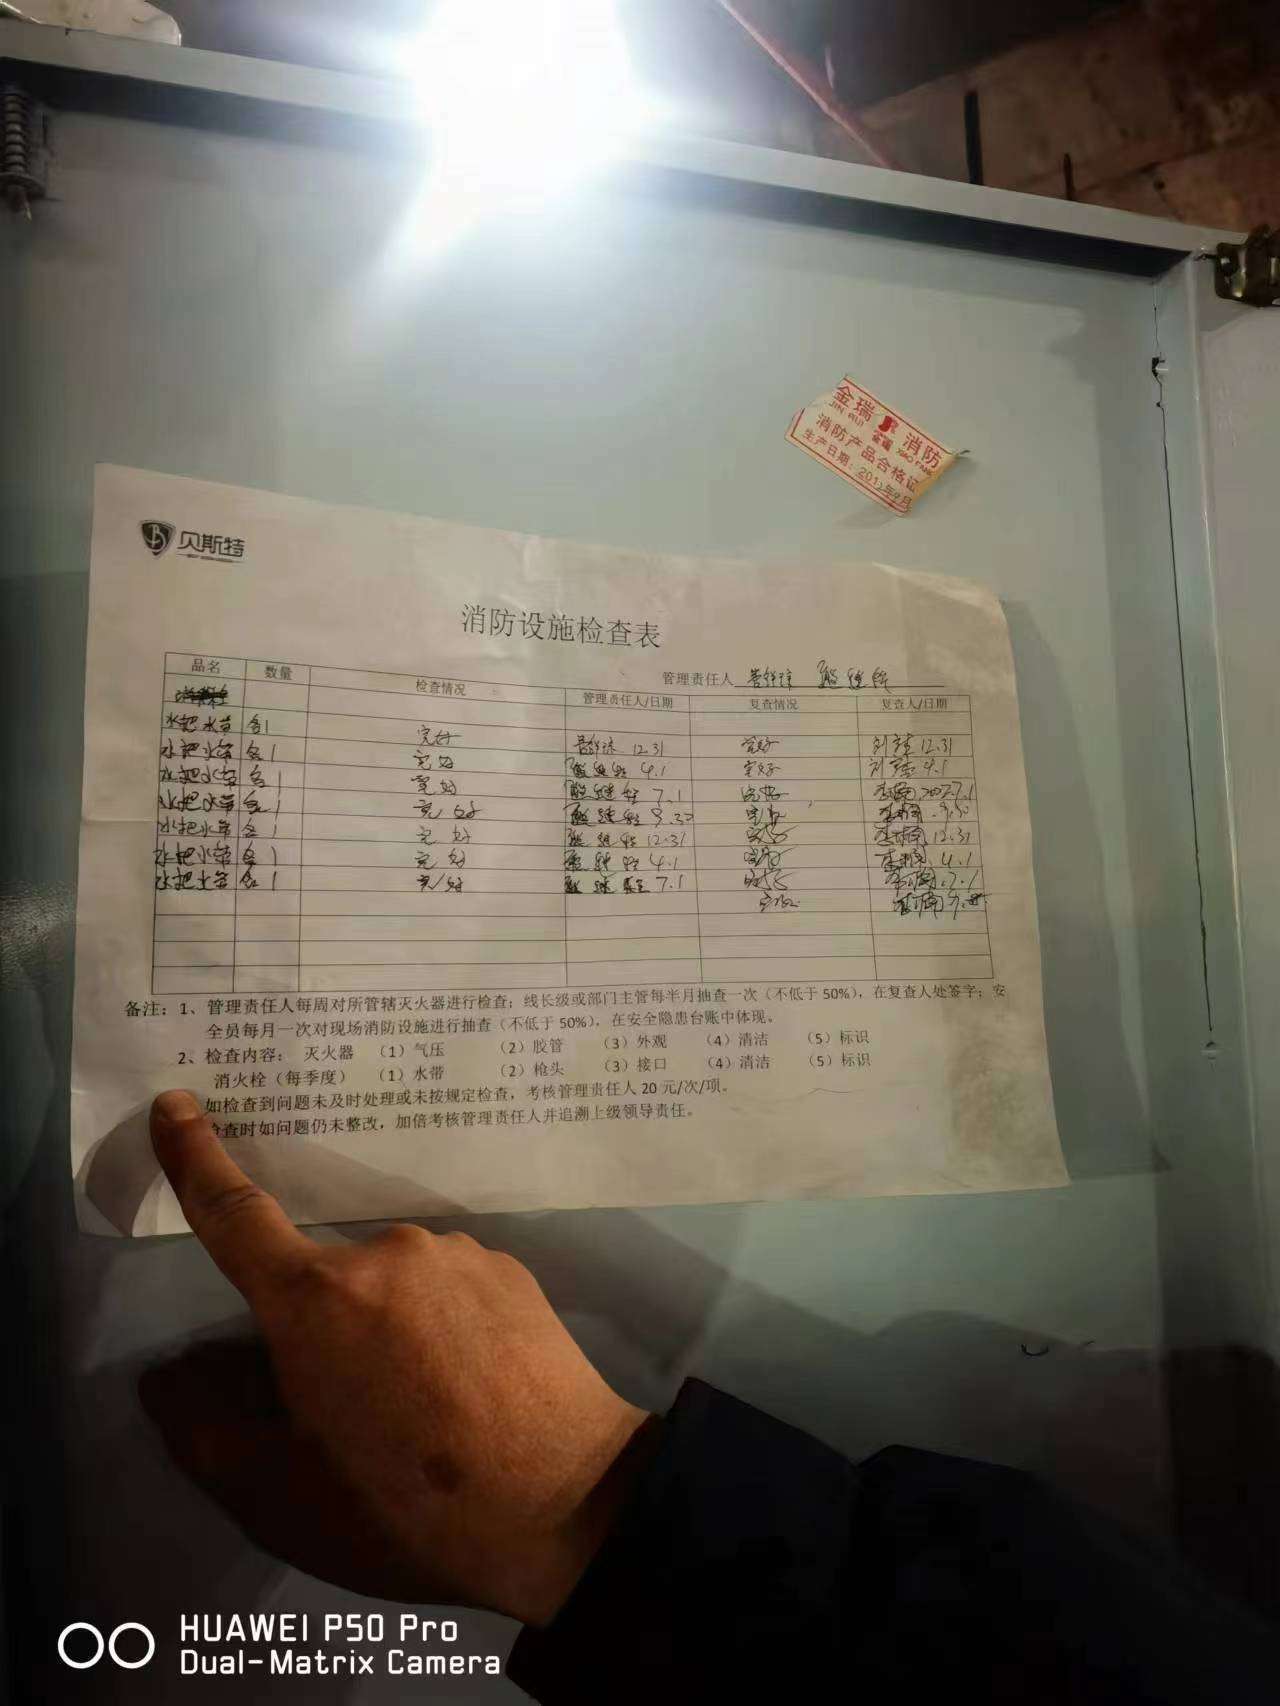 金瑞 消防
JIN RUI 金瑞 XIAO FANG
消防产品合格证
生产日期：201 年9月
贝斯特
消防设施检查表
管理责任人
品名 数量 检查情况 管理责任人/日期 复查情况 复查人/日期
水把水带 各1 完好 12.31 完好 12.31
水把水带 各1 完好 4.1 完好 4.1
水把水带 各1 完好 7.1 完好 7.1
水把水带 各1 完好 9.30 完好 9.30
水把水带 各1 完好 12.31 完好 12.31
水把水带 各1 完好 4.1 完好 4.1
水把水带 各1 完好 7.1 完好 7.1
完好
备注：1、管理责任人每周对所管辖灭火器进行检查；线长级或部门主管每半月抽查一次（不低于50%），在复查人处签字；安
全员每月一次对现场消防设施进行抽查（不低于50%），在安全隐患台账中体现。
2、检查内容： 灭火器 （1）气压 （2）胶管 （3）外观 （4）清洁 （5）标识
消火栓（每季度） （1）水带 （2）枪头 （3）接口 （4）清洁 （5）标识
如检查到问题未及时处理或未按规定检查，考核管理责任人20元/次/项。
检查时如问题仍未整改，加倍考核管理责任人并追溯上级领导责任。
HUAWEI P50 Pro
Dual-Matrix Camera